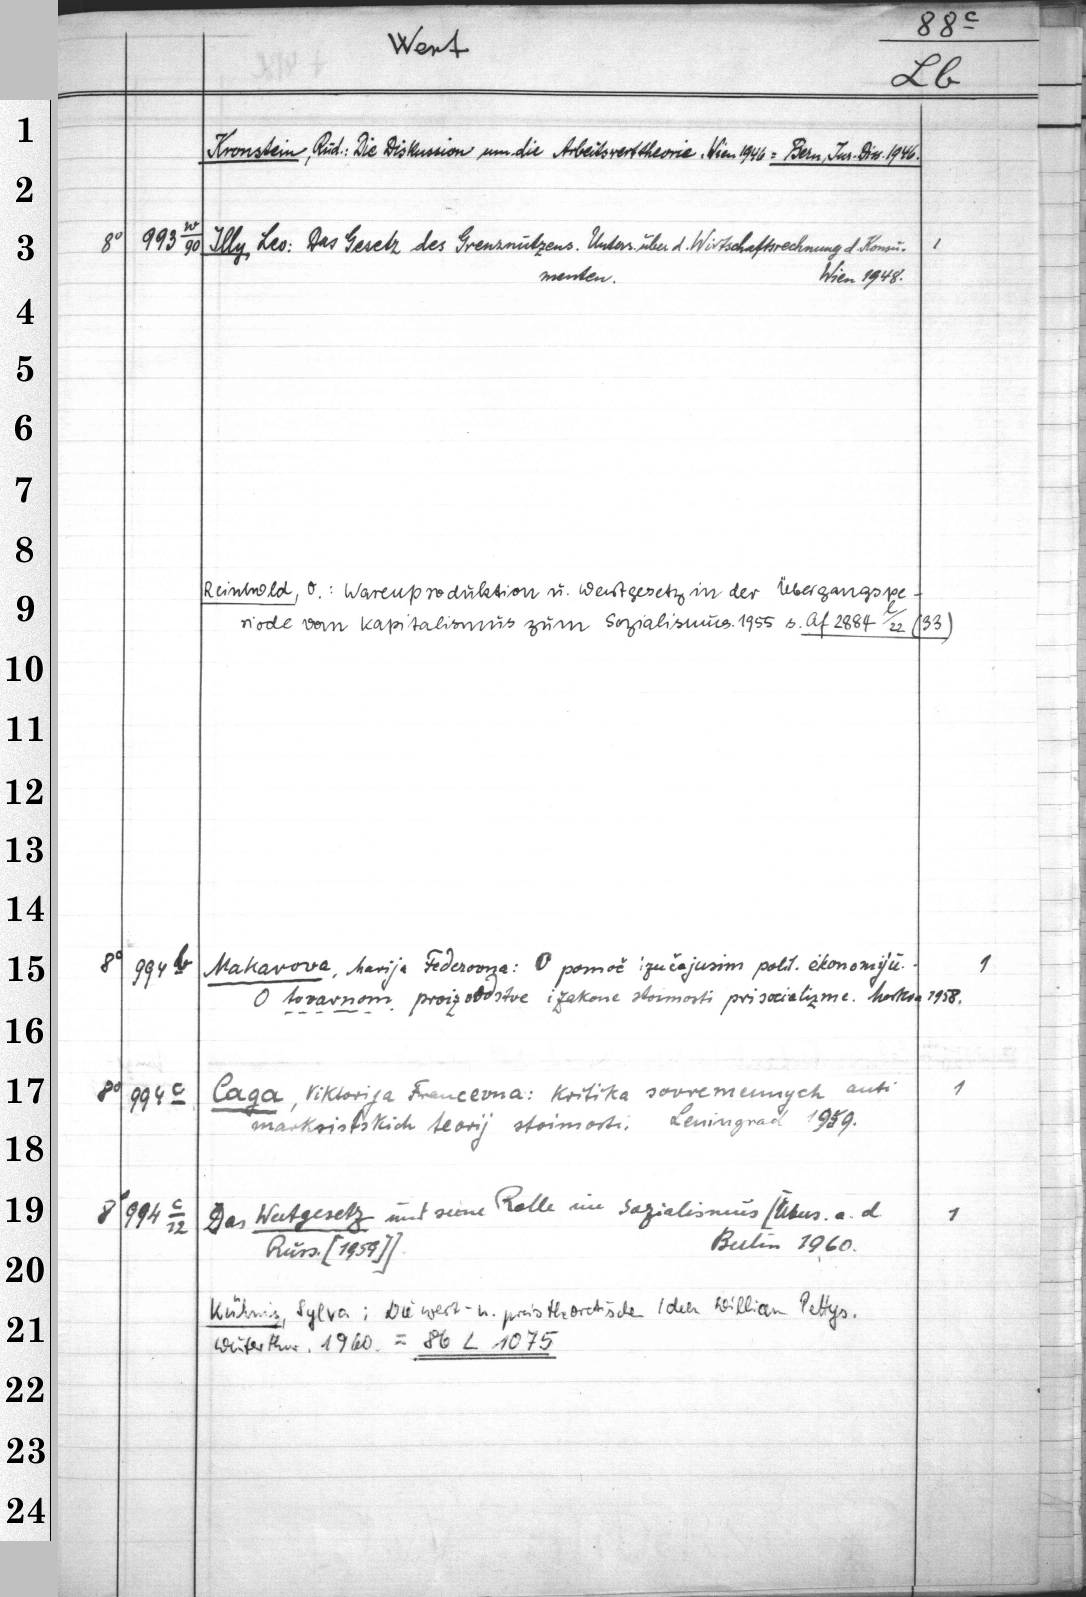 Wert
88c
Lb
1
Kronstein, Rud.: Die Diskussion um die Arbeitswerttheorie. Wien 1946 = Bern, Jur. Diss. 1946.
2
3 8° 993 w/90 Illy, Leo: Das Gesetz des Grenznutzens. Unters. über d. Wirtschaftsrechnung d. Konsu- 1
menten. Wien 1948.
4
5
6
7
8
Reinhold, O.: Warenproduktion u. Wertgesetz in der Übergangspe-
9
riode vom Kapitalismus zum Sozialismus. 1955 s. Af 2884 l/22 (33)
10
11
12
13
14
15 8° 994 b Makarova, Marija Federovna: O pomoč' izučajusim polit. ėkonomiju. - 1
O tovarnom proizvodstve i zakone stoimosti pri socializme. Moskva 1958.
16
17 8° 994 c Caga, Viktorija Francevna: Kritika sovremennych anti 1
marksistskich teorij stoimosti. Leningrad 1959.
18
19 8° 994 c/12 Das Wertgesetz und seine Rolle im Sozialismus [Übers. a. d 1
Russ. [1959]]. Berlin 1960.
20
Kühnis, Sylva: Die wert- u. preistheoretischen Ideen William Pettys.
21
Winterthur. 1960. = 86 L 1075
22
23
24